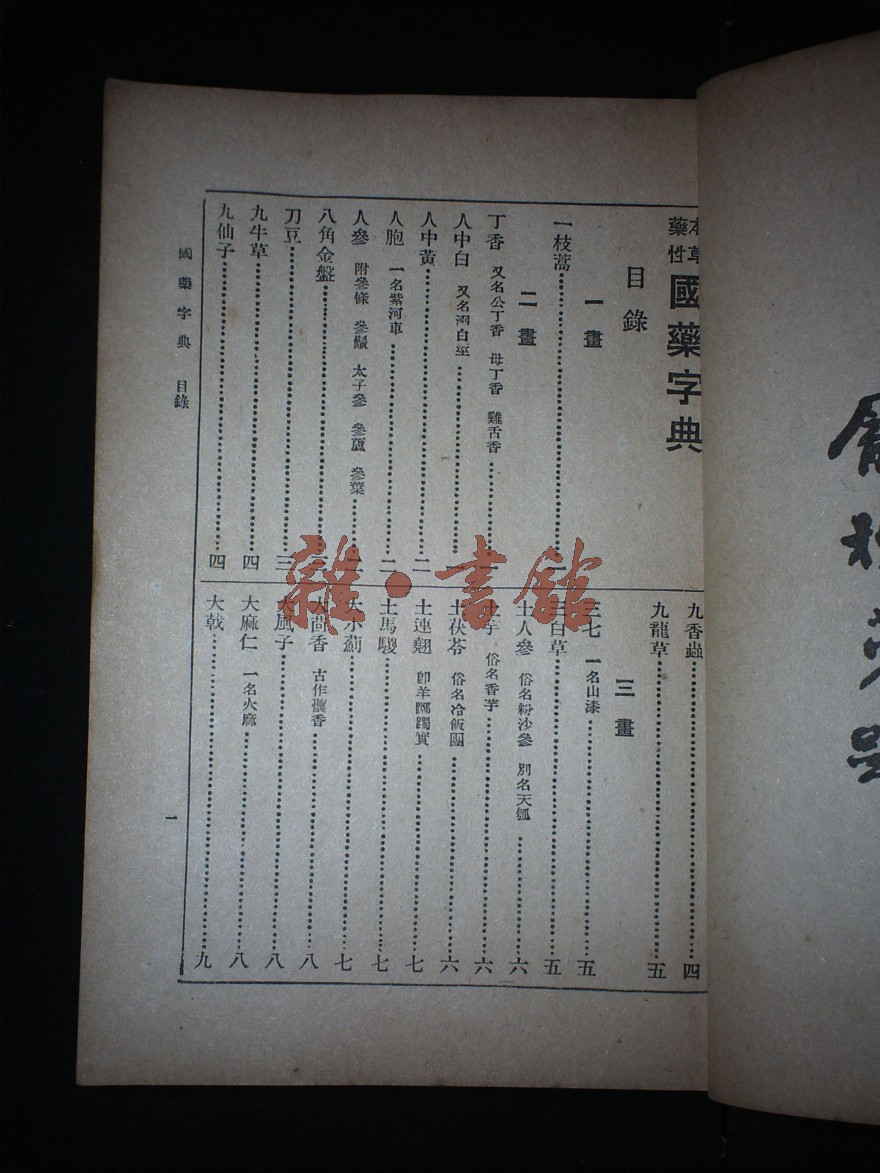 本草
藥性
國藥字典
目錄
一畫
一枝蒿……一
二畫
丁香 又名公丁香 母丁香 雞舌香……一
人中白 又名溺白垽……一
人中黃……二
人胞 一名紫河車……二
人參 附參條 參鬚 太子參 參蘆 參葉……二
八角金盤……三
刀豆……三
九牛草……四
九仙子……四
九香蟲……四
九龍草……五
三畫
三七 一名山漆……五
三白草……五
土人參 俗名粉沙參 別名天瓠……六
土芋 俗名香芋……六
土茯苓 俗名冷飯團……六
土連翹 卽羊躑躅實……七
土馬騣……七
大小薊……七
大茴香 古作蘹香……八
大風子……八
大麻仁 一名火麻……八
大戟……九
國藥字典 目錄
一
雜·書館